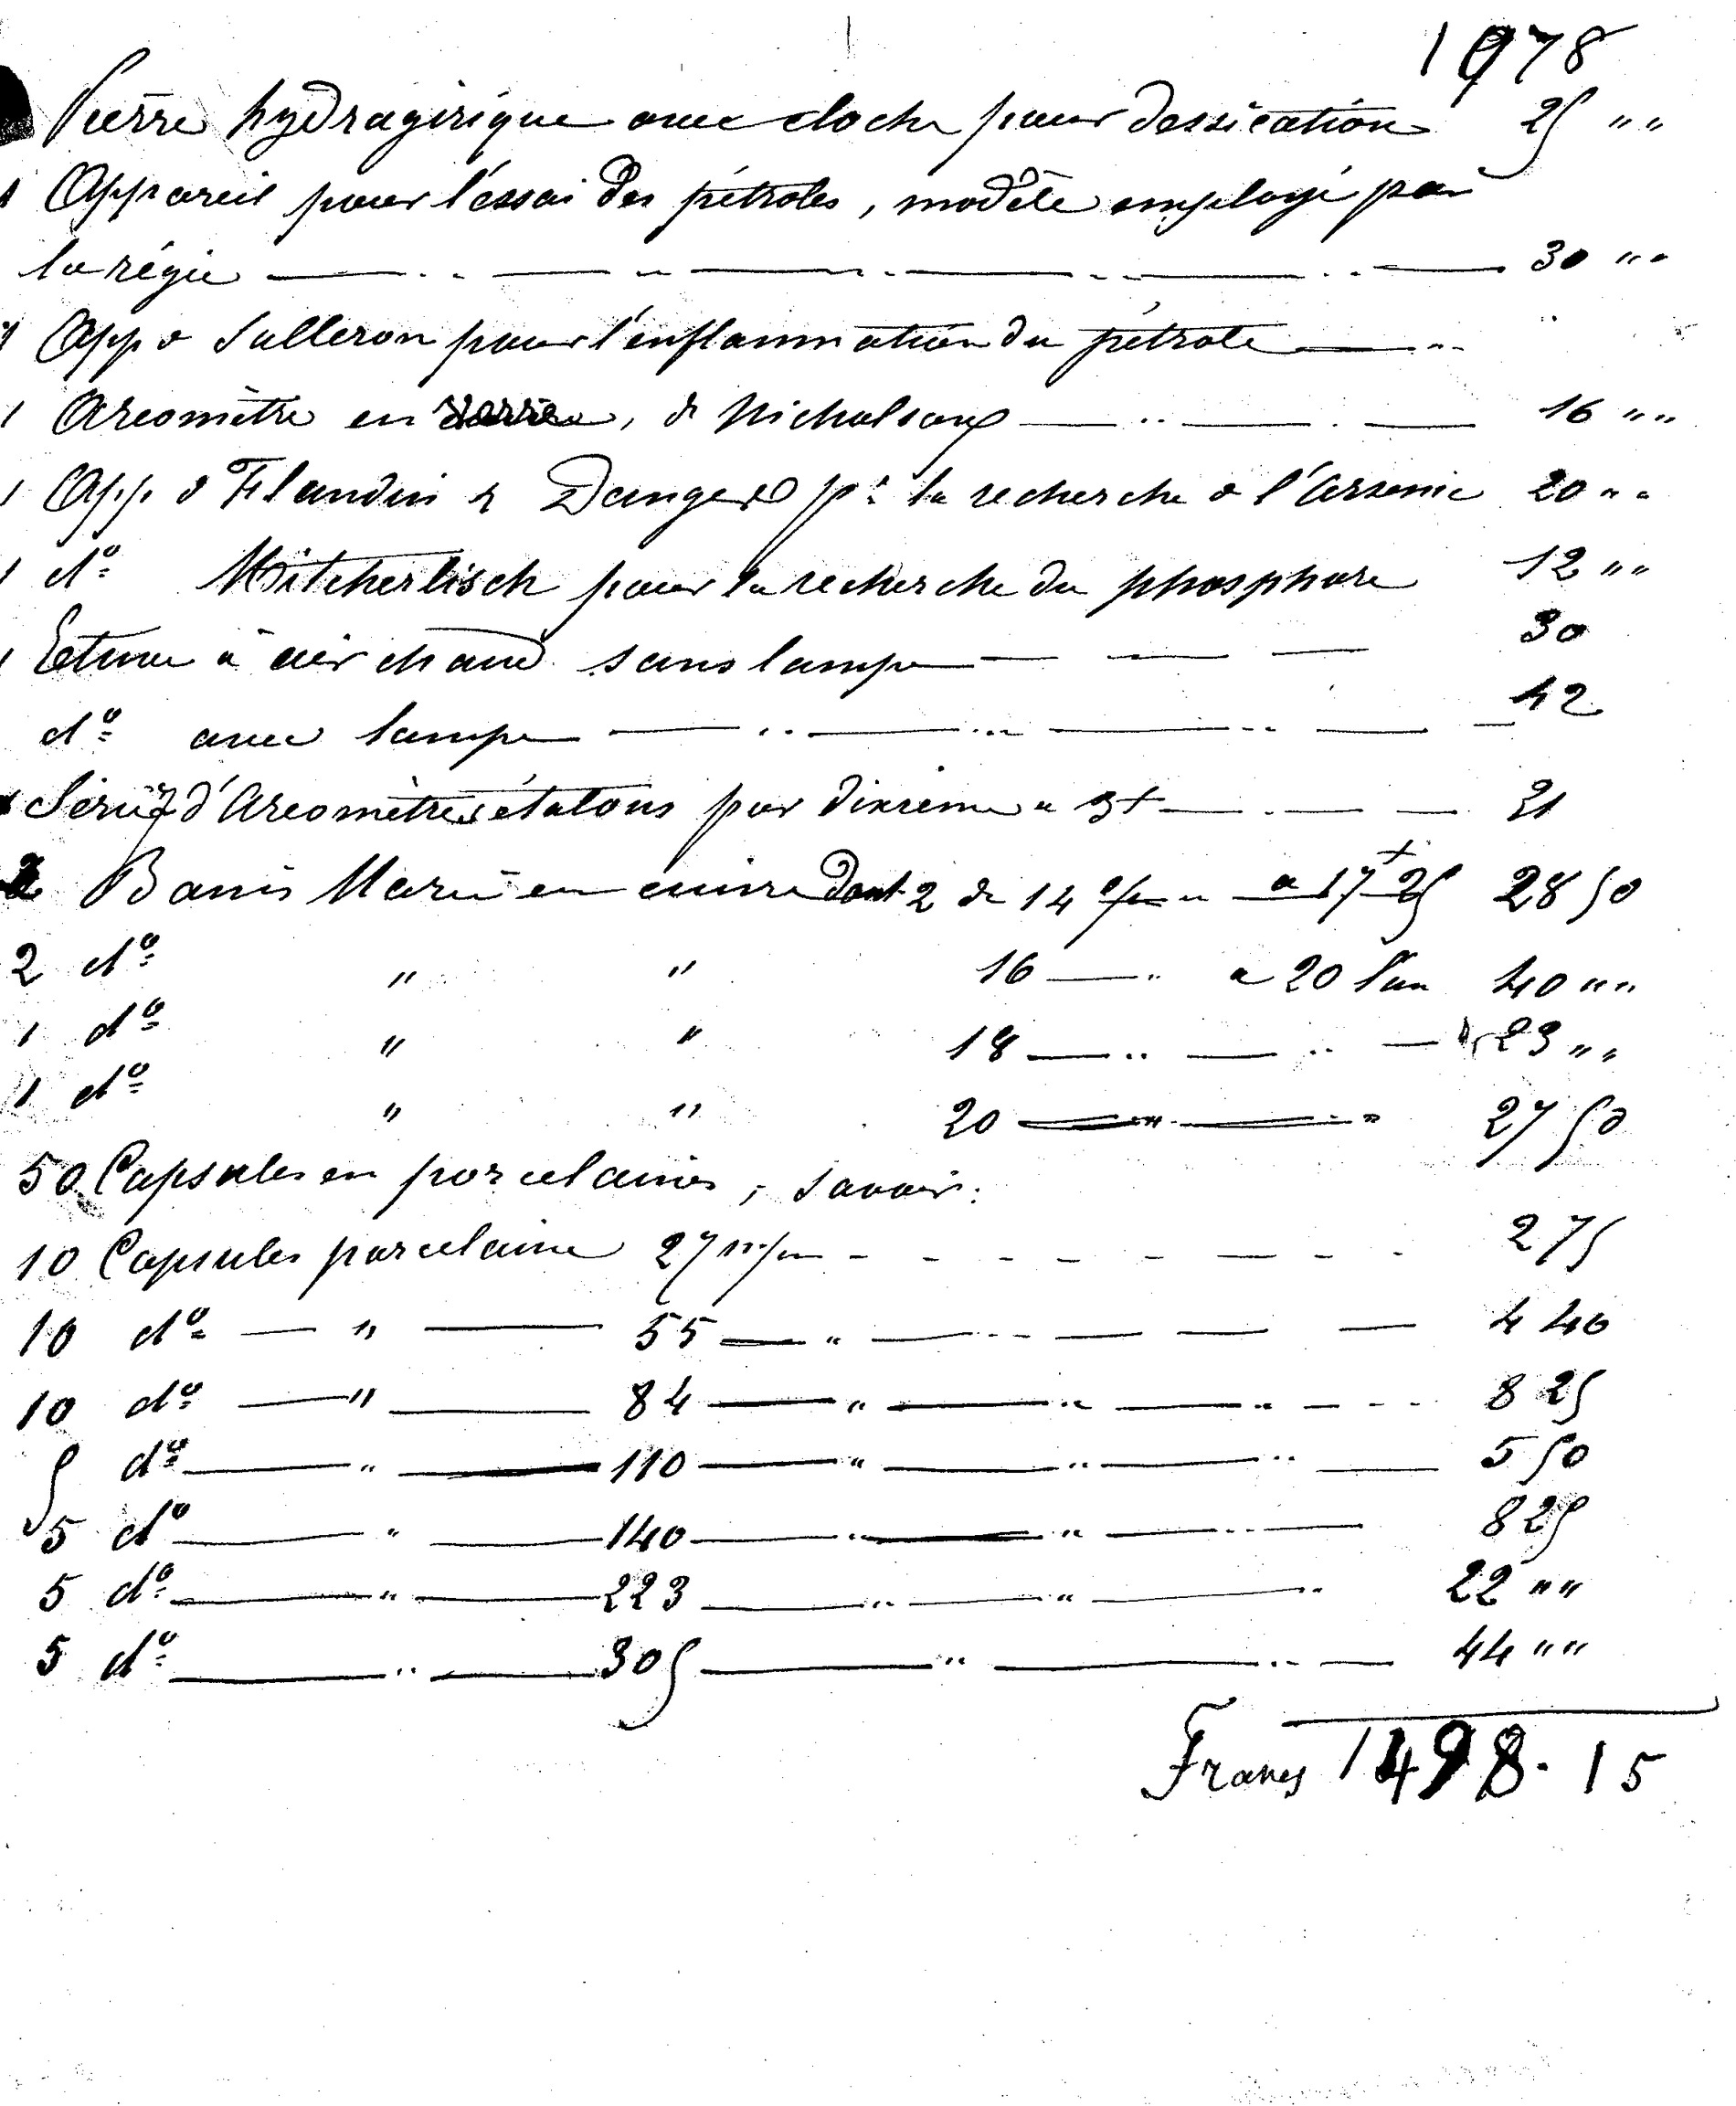 1978
Pierre hydragirique avec cloche pour dessication 25 " "
1 Appareil pour l'éssai des pétroles, modèle employé par
la régie 30 " "
1 App de Salleron pour l'enflammation du pétrole
1 Areomètre en verre, de Nicholson 16 " "
1 App de Flandin & Danger pr la recherche de l'Arsenic 20 " "
1 do Mitcherlisch pour la recherche du phosphore 12 " "
1 Etuve à air chaud sans lampe 30
do avec lampe 42
1 Série d'Areomètres étalons par dixième a 3+ 21
2 Bains Marie en cuivre dont 2 de 14 c/m a 17 25 28 50
2 do " " 16 a 20 l'un 40 " "
1 do " " 18 23 " "
1 do " " 20 27 50
50 Capsules en porcelaines, savoir:
10 Capsules porcelaine 27 m/m 2 75
10 do " 55 " 4 40
10 do " 84 " 8 25
5 do " 110 " 5 50
5 do " 140 " 8 25
5 do " 223 " 22 " "
5 do " 305 " 44 " "
Francs 1498.15